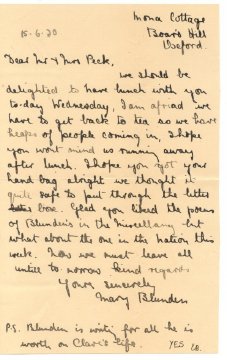 Mona Cottage
15.6.20 Boars Hill
Oxford.
Dear Mr & Mrs Peck.
We should be
delighted to have lunch with you
to-day Wednesday, I am afriad we
have to get back to tea so we have
heaps of people coming in, I hope
you wont mind us running away
after lunch. I hope you got your
hand bag alright we thought it
quite safe to put through the letter
box. Glad you liked the poems
of Blunden's in the Miscellany but
what about the one in the Nation this
week. Now we must leave all
untill to morrow kind regards
Yours sincerely
Mary Blunden
P.S. Blunden is writing for all he is
worth on Clare's life. YES